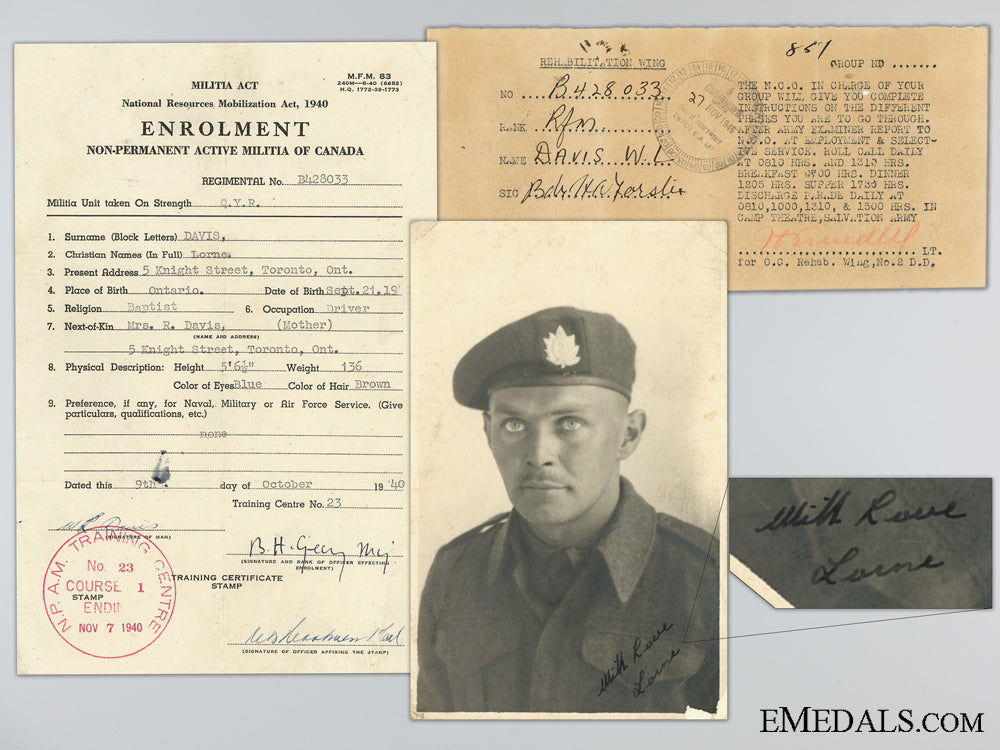 MILITIA ACT
M.F.M. 83
240M—8-40 (6682)
H.Q. 1772-39-1773
National Resources Mobilization Act, 1940
ENROLMENT
NON-PERMANENT ACTIVE MILITIA OF CANADA
REGIMENTAL No. B428033
Militia Unit taken On Strength Q.Y.R.
1. Surname (Block Letters) DAVIS,
2. Christian Names (In Full) Lorne.
3. Present Address 5 Knight Street, Toronto, Ont.
4. Place of Birth Ontario. Date of Birth Sept.21.19
5. Religion Baptist 6. Occupation Driver
7. Next-of-Kin Mrs. R. Davis, (Mother)
(NAME AND ADDRESS)
5 Knight Street, Toronto, Ont.
8. Physical Description: Height 5'6½" Weight 136
Color of Eyes Blue Color of Hair Brown
9. Preference, if any, for Naval, Military or Air Force Service. (Give
particulars, qualifications, etc.)
none
Dated this 9th. day of October 1940
Training Centre No. 23
W L Davis
(SIGNATURE OF MAN)
B. H. Geary Maj
(SIGNATURE AND RANK OF OFFICER EFFECTING
ENROLMENT)
TRAINING CERTIFICATE
STAMP
N.P.A.M. TRAINING CENTRE
No. 23
COURSE 1
STAMP
ENDIN
NOV 7 1940
(SIGNATURE OF OFFICER AFFIXING THE STAMP)
851
REHABILITATION WING
GROUP NO .......
NO B428033
RANK Rfm
NAME DAVIS W.L.
SIG Bdr. H.A.
27 NOV 1945
THE N.C.O. IN CHARGE OF YOUR
GROUP WILL GIVE YOU COMPLETE
INSTRUCTIONS ON THE DIFFERENT
PHASES YOU ARE TO GO THROUGH.
AFTER ARMY EXAMINER REPORT TO
N.C.O. AT EMPLOYMENT & SELECT-
IVE SERVICE. ROLL CALL DAILY
AT 0810 HRS. AND 1310 HRS.
BREAKFAST 0700 HRS. DINNER
1205 HRS. SUPPER 1730 HRS.
DISCHARGE PARADE DAILY AT
0810,1000,1310, & 1500 HRS. IN
CAMP THEATRE,SALVATION ARMY
LT.
for O.C. Rehab. Wing,No.2 D.D.
With Love
Lorne
With Love
Lorne
EMEDALS.COM